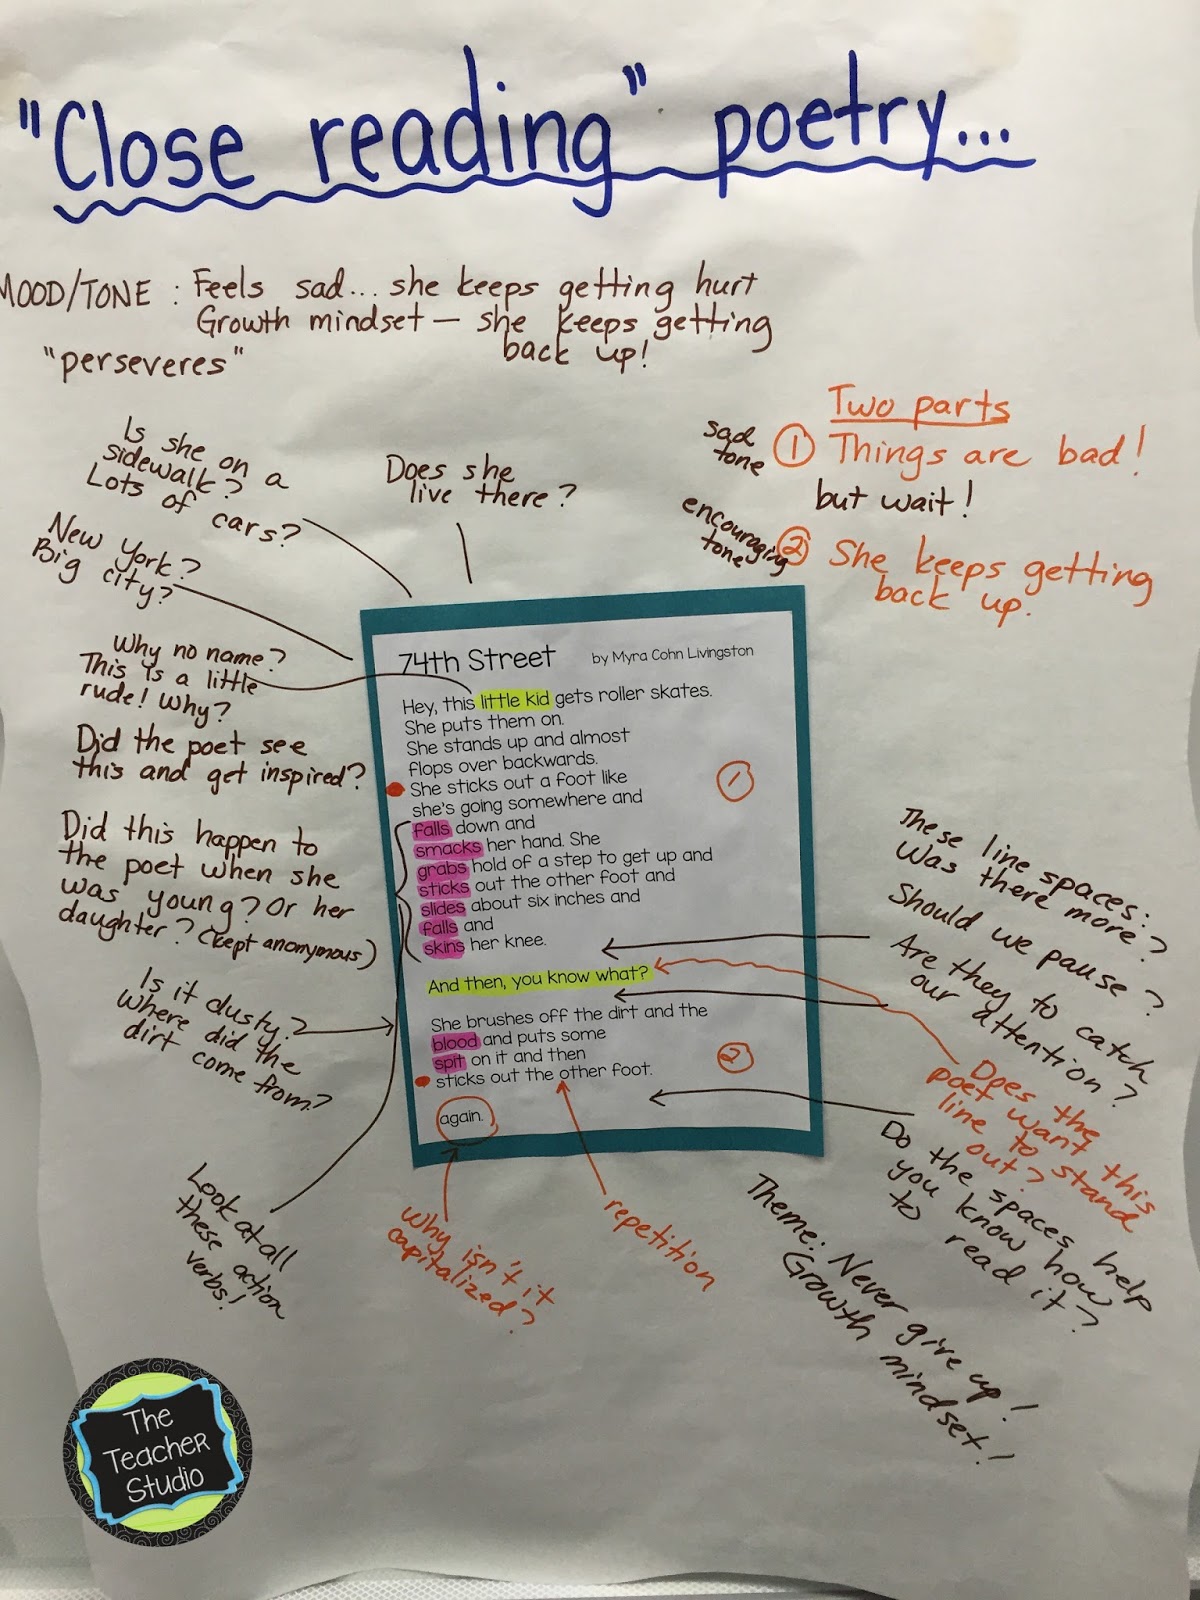 "Close reading" poetry...
MOOD/TONE : Feels sad... she keeps getting hurt
Growth mindset — she keeps getting
back up!
"perseveres"
Is she on a
sidewalk?
Lots of cars?
Does she
live there?
New York?
Big city?
Two parts
sad
tone
① Things are bad!
but wait!
encouraging
tone
② She keeps getting
back up.
Why no name?
This is a little
rude! Why?
Did the poet see
this and get inspired?
Did this happen to
the poet when she
was young? Or her
daughter? (kept anonymous)
Is it dusty?
Where did the
dirt come from?
Look at all
these action
verbs!
74th Street
by Myra Cohn Livingston
Hey, this little kid gets roller skates.
She puts them on.
She stands up and almost
flops over backwards.
She sticks out a foot like
she's going somewhere and
falls down and
smacks her hand. She
grabs hold of a step to get up and
sticks out the other foot and
slides about six inches and
falls and
skins her knee.
①
And then, you know what?
She brushes off the dirt and the
blood and puts some
spit on it and then
sticks out the other foot.
②
again.
These line spaces:
Was there more?
Should we pause?
Are they to catch
our attention?
Does the
poet want this
line to stand
out?
Do the spaces help
you know how
to read it?
why isn't it
capitalized?
repetition
Theme: Never give up!
Growth mindset!
The
Teacher
Studio